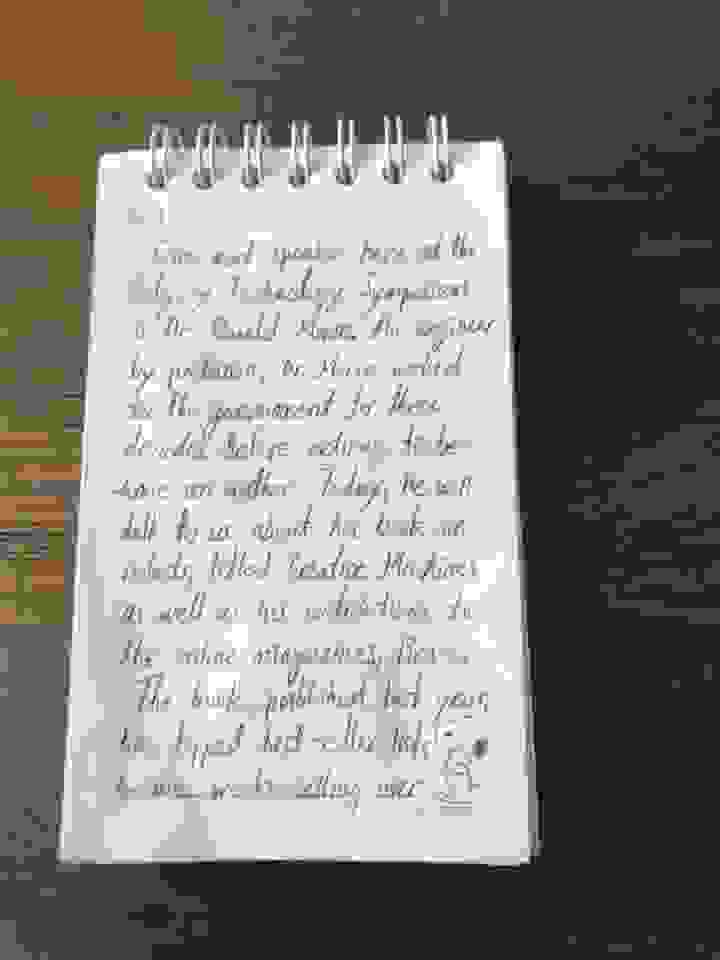 next speaker here at the
Technology Symposium
is Dr. Ronald Mann. An engineer
by profession, Dr. Mann worked
for the government for three
decades before retiring to be-
come an author. Today, he will
talk to us about his book on
titled Creative Machines
as well as his contributions to
the online magazines,
The book, published last year,
has topped best-seller lists
weeks selling over